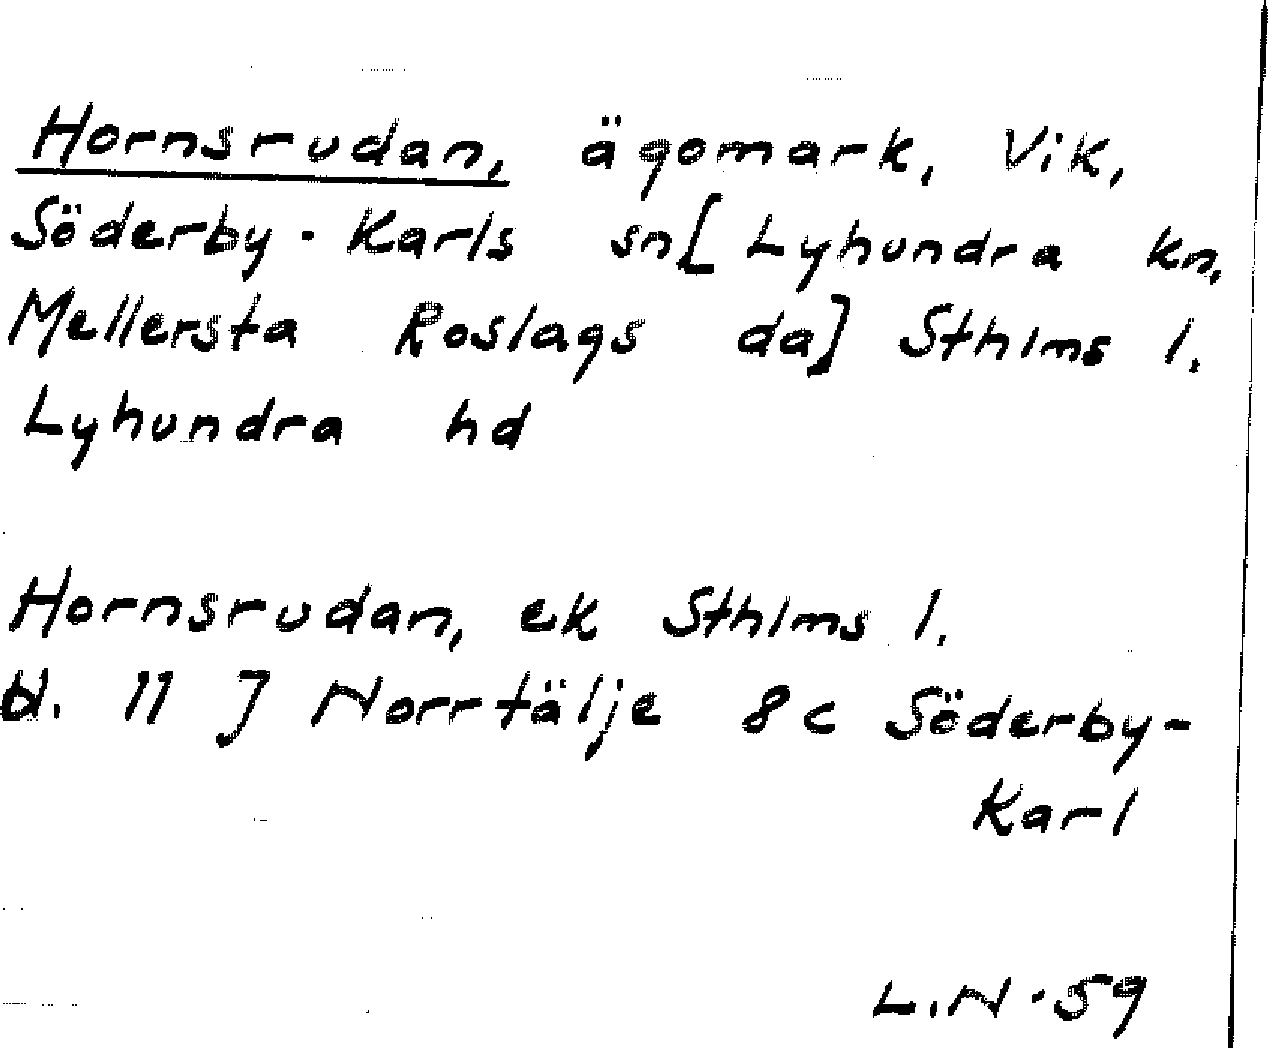 Hornsrudan, ägomark, Vik,
Söderby-Karls sn[Lyhundra kn,
Mellersta Roslags da] Sthlms l.
Lyhundra hd
Hornsrudan, ek Sthlms l.
bl. 11 J Norrtälje 8c Söderby-
Karl
L.N-59